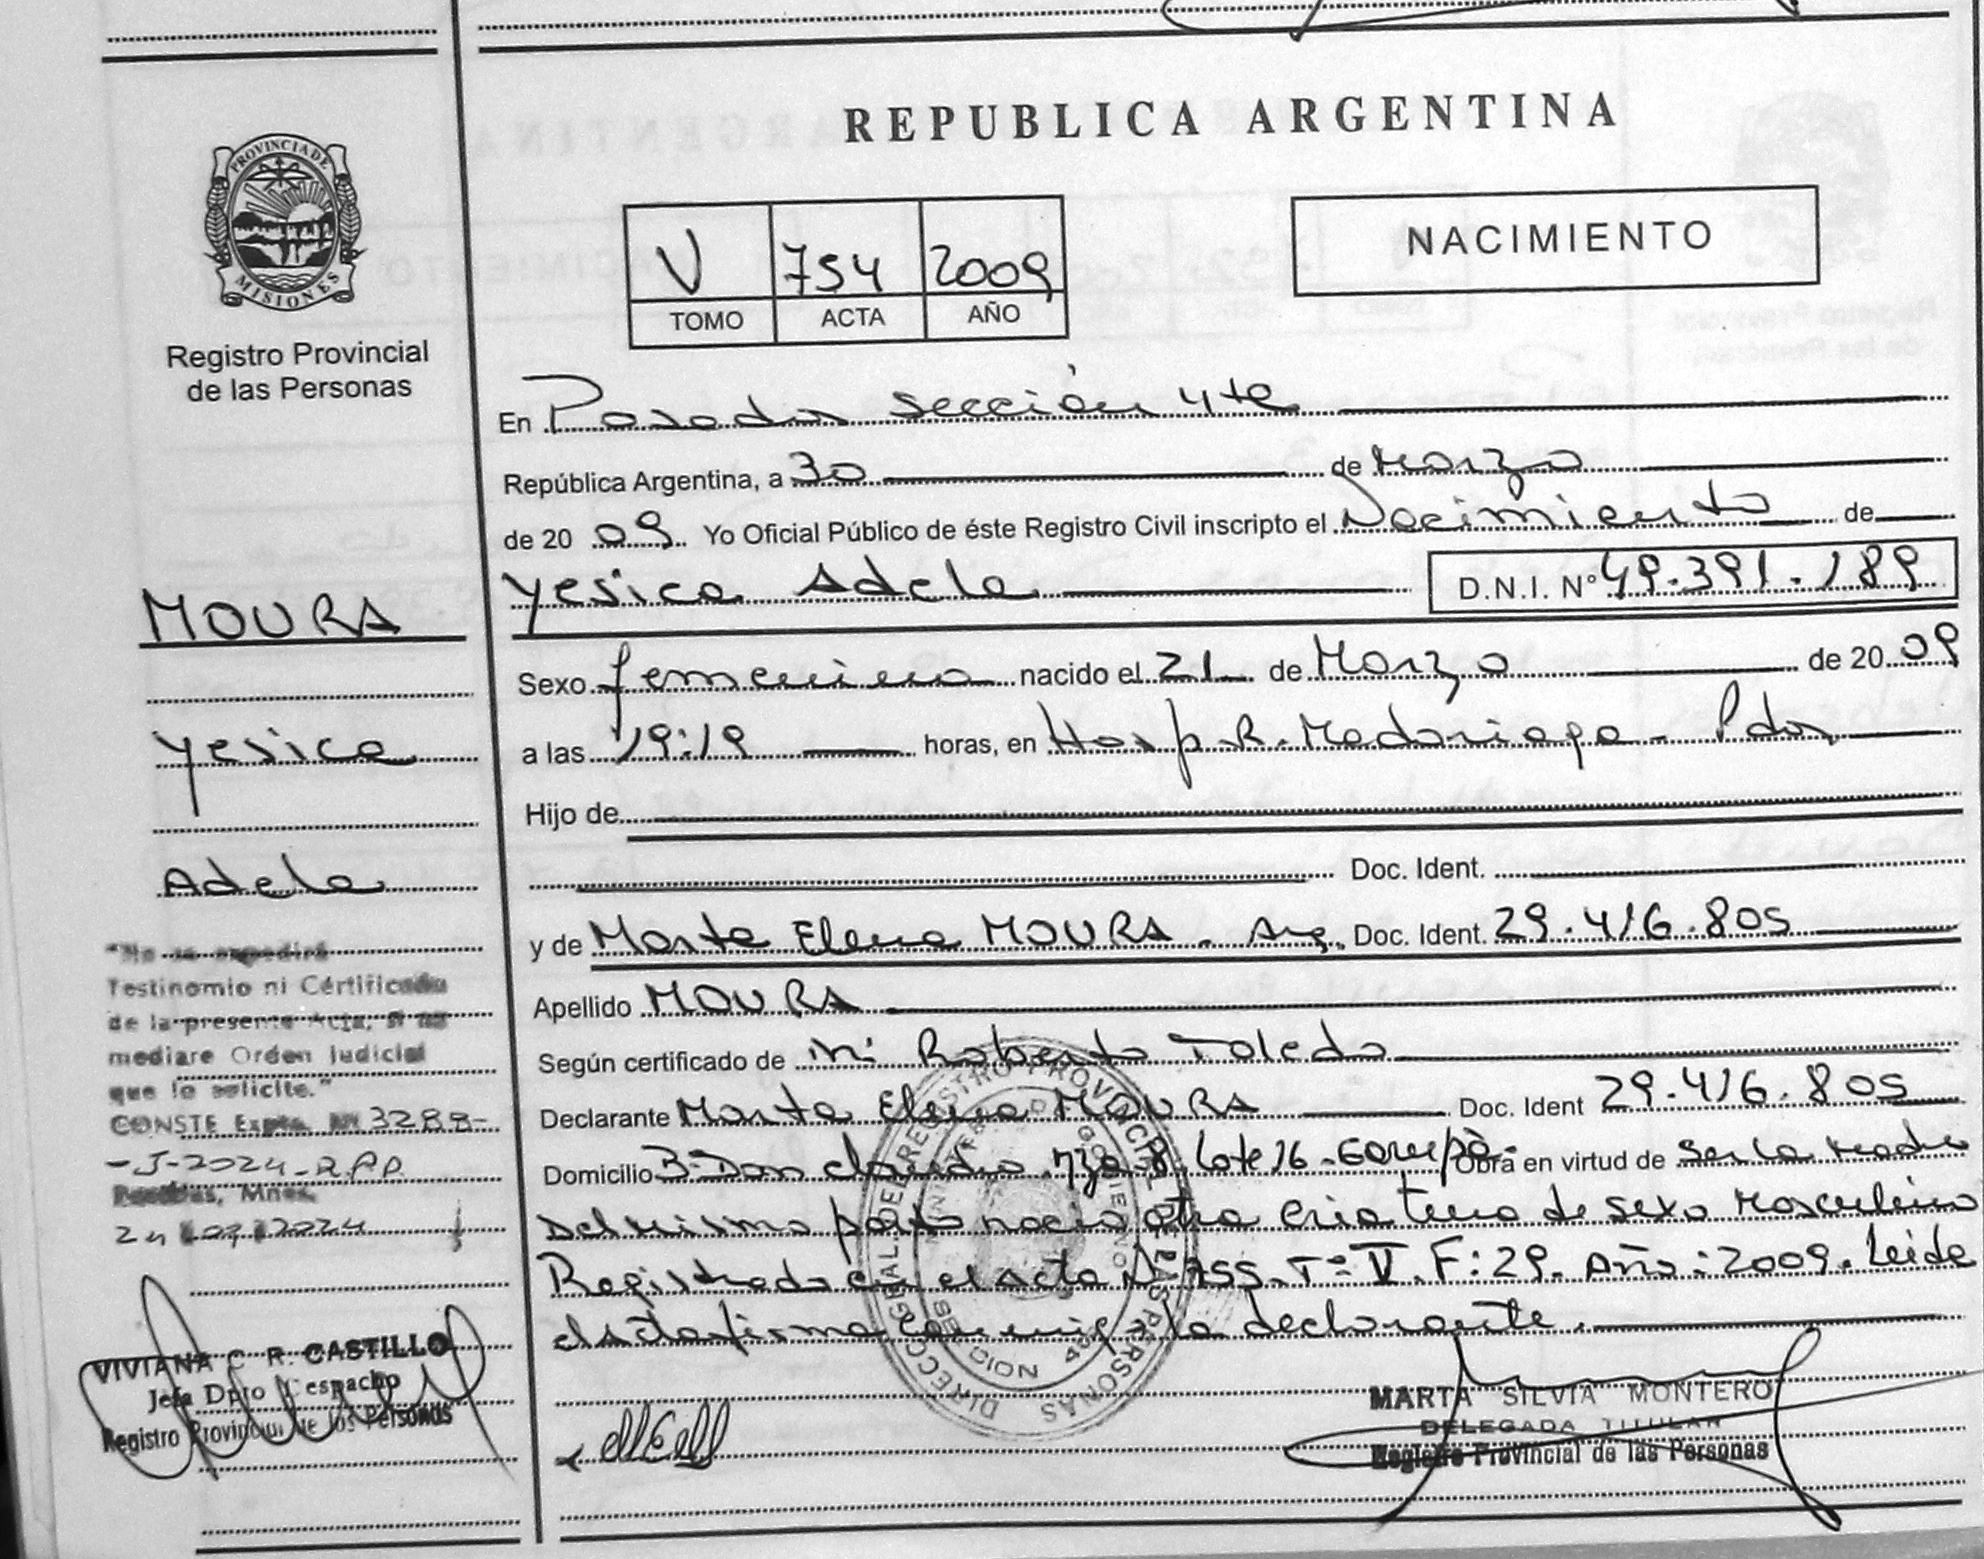 REPUBLICA ARGENTINA
PROVINCIA DE
MISIONES
Registro Provincial
de las Personas
V 754 2009
TOMO ACTA AÑO
NACIMIENTO
En Posadas Sección 4ta
República Argentina, a 30 de Marzo
de 20 09 Yo Oficial Público de éste Registro Civil inscripto el Nacimiento de
Yesica Adela D.N.I. Nº 49.391.189
Sexo femenino nacido el 21 de Marzo de 20 09
a las 19:19 horas, en Hosp. R. Madariaga - Pdas
Hijo de
Doc. Ident.
y de Marta Elena MOURA. Arg. Doc. Ident. 29.416.805
Apellido MOURA
Según certificado de Roberto Toledo
Declarante Marta Elena MOURA Doc. Ident 29.416.805
Domicilio Bº Don Claudio Mza 8 Lote 16 - Garupá. Obra en virtud de ser la madre
Del mismo parto nació otra criatura de sexo Masculino
Registrada en el acta Nº 755. Tº V. F: 29. Año: 2009. Leida
el acta firma conmigo la declarante.
MOURA
Yesica
Adela
"No se expedirá
Testinomio ni Certificado
de la presente Acta, si no
mediare Orden Judicial
que lo solicite."
CONSTE Expte. Nº 3288-
-J-2024-R.P.P.
Posadas, Mnes.
2024
VIVIANA C. R. CASTILLO
Jefa Dpto Despacho
Registro Provincial de las Personas
DIRECC. GRAL. DEL REGISTRO PROVINCIAL DE LAS PERSONAS
MARTA SILVIA MONTERO
DELEGADA TITULAR
Registro Provincial de las Personas